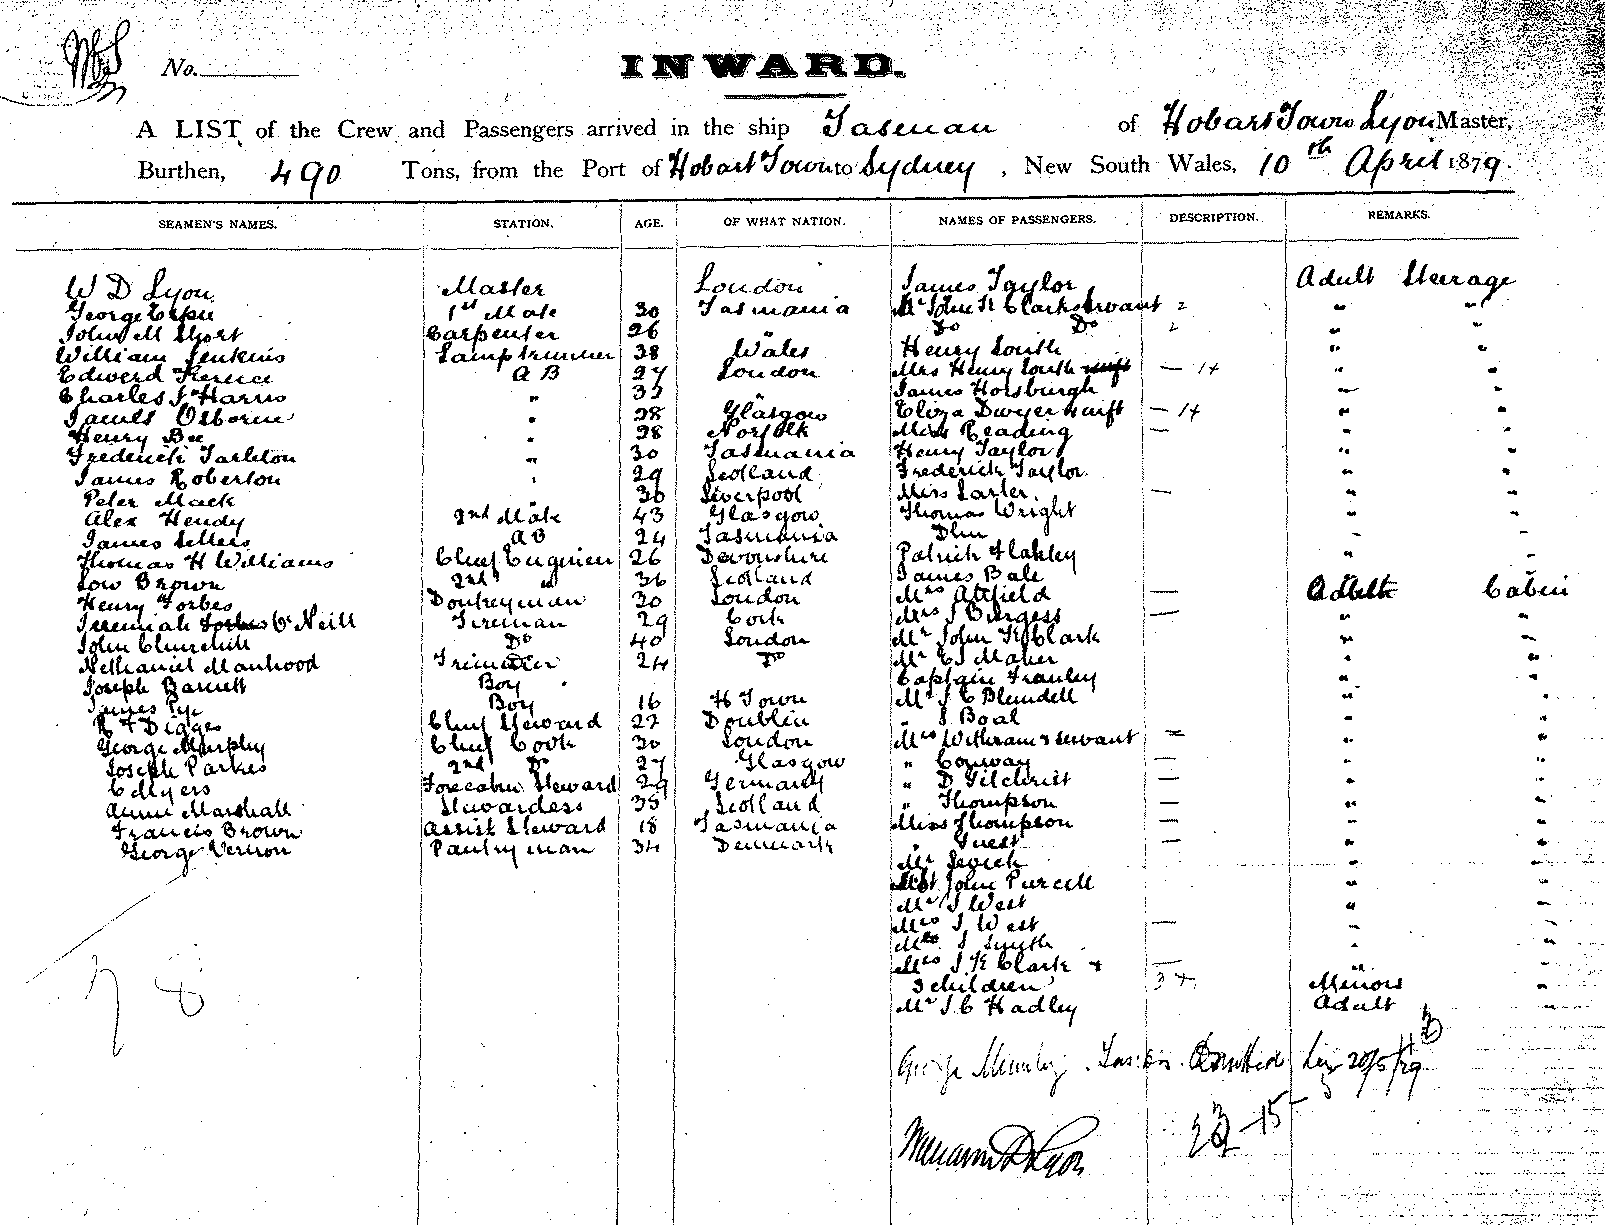 No.
INWARD.
A LIST of the Crew and Passengers arrived in the ship Tasman of Hobart Town Lyon Master,
Burthen, 490 Tons, from the Port of Hobart Town to Sydney, New South Wales, 10th April 1879.
SEAMEN'S NAMES. STATION. AGE. OF WHAT NATION. NAMES OF PASSENGERS. DESCRIPTION. REMARKS.
W D Lyon Master London James Taylor Adult Steerage
George 1st Mate 30 Tasmania Mr John K Clarks servant 2 " "
John M Short Carpenter 26 " Do Do 2 " "
William Jenkins Lamptrimmer 38 Wales Henry South " "
Edwerd A B 27 London Mrs Henry South — 14 " "
Charles J Harris " 35 " James Horsburgh " "
James Osborne " 28 Glasgow Eliza Dwyer — 14 " "
Henry Bee " 28 Norfolk Miss Reading — " "
Frederick Tarleton " 30 Tasmania Henry Taylor " "
James Roberton " 29 Scotland Frederick Taylor " "
Peter Mack " 30 Liverpool Miss Larter — " "
Alex Hendy 2nd Mate 43 Glasgow Thomas Wright " "
James Sellers A B 24 Tasmania " "
Thomas H Williams Chief Engineer 26 Devonshire Patrick " "
Low Brown 2nd " 36 Scotland James Bale " "
Henry Forbes Donkeyman 30 London Mrs Attfield — Adult Cabin
Jeremiah O'Neill Fireman 29 Cork Mrs J Burgess — " "
John Churchill Do 40 London Mr John K Clark " "
Nethaniel Manhood Trimmer 24 Do Mr E J Maher " "
Joseph Barnett Boy " Captain Franley " "
James Pye Boy 16 H Town Mr J C Blundell " "
R F Digges Chief Steward 27 Doublin " J Boal " "
George Murphy Chief Cook 30 London Mrs Withram & servant — " "
Joseph Parkes 2nd Do 27 Glasgow " Conway — " "
C Myers Forecabin Steward 29 Germany " D Gilchrist — " "
Annie Marshall Stewardess 35 Scotland " Thompson — " "
Francis Brown Assist Steward 18 Tasmania Miss Thompson — " "
George Vernon Pantryman 34 Denmark " Guest — " "
Mr " "
John Purcell " "
Mr J West " "
Mrs J West — " "
J Smith " "
Mrs J K Clark & — " "
3 children 3 Minors "
Mr J C Hadley Adult "
George 20/5/79
78
William D Lyon
15